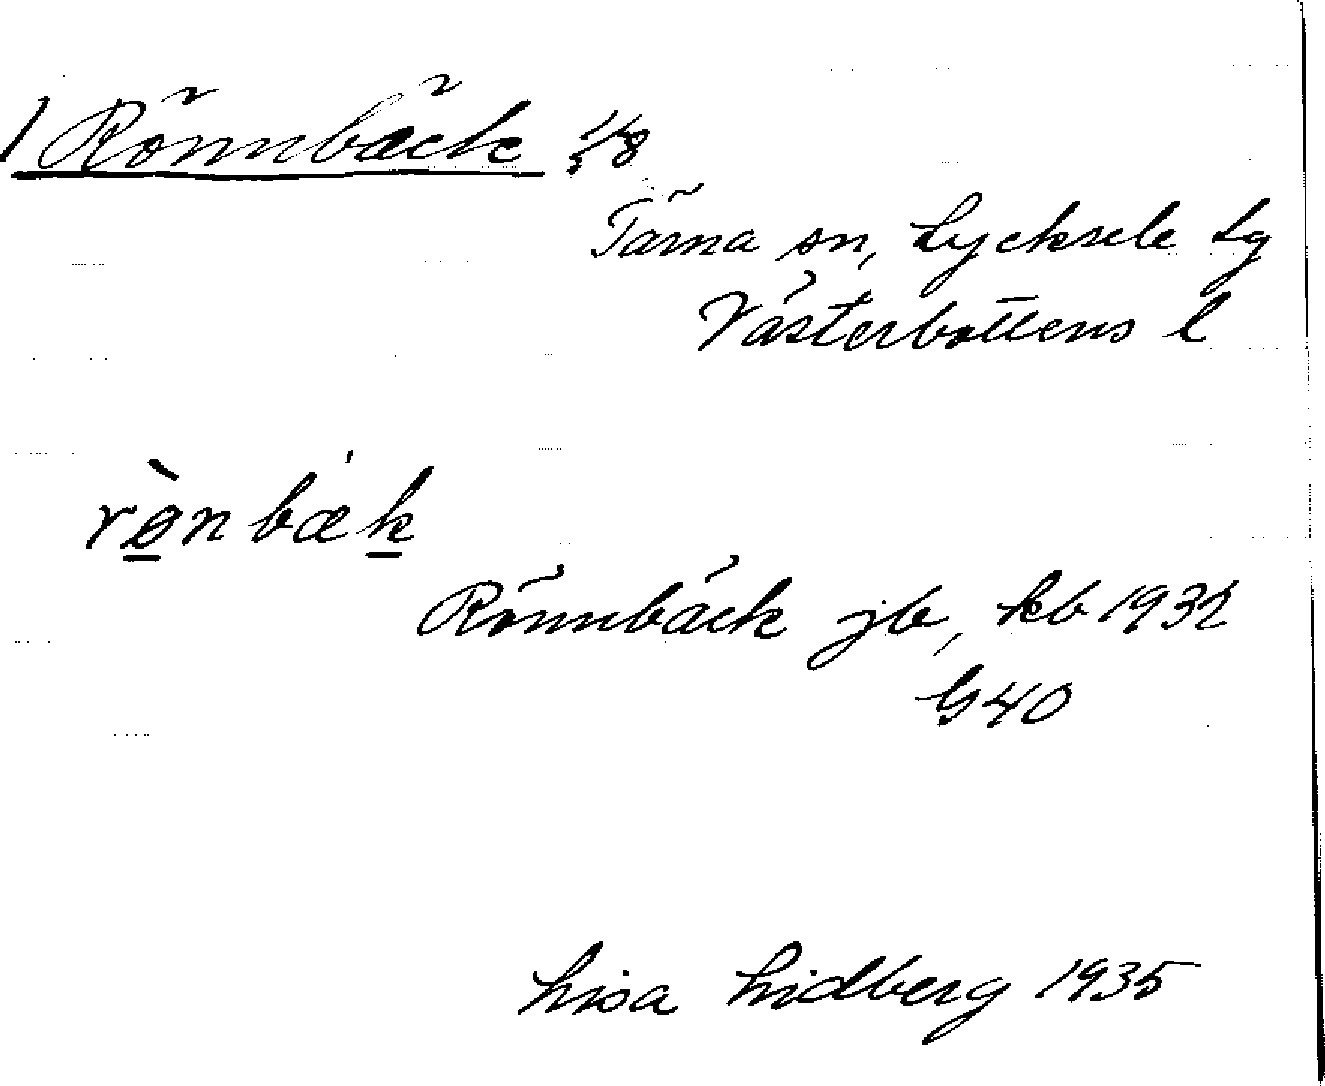 1 Rönnbäck 5/8
Tärna sn, Lycksele lg
Västerbottens l
rǿnbæk
Rönnbäck jb, kb 1932
G40
Lisa Lidberg 1935